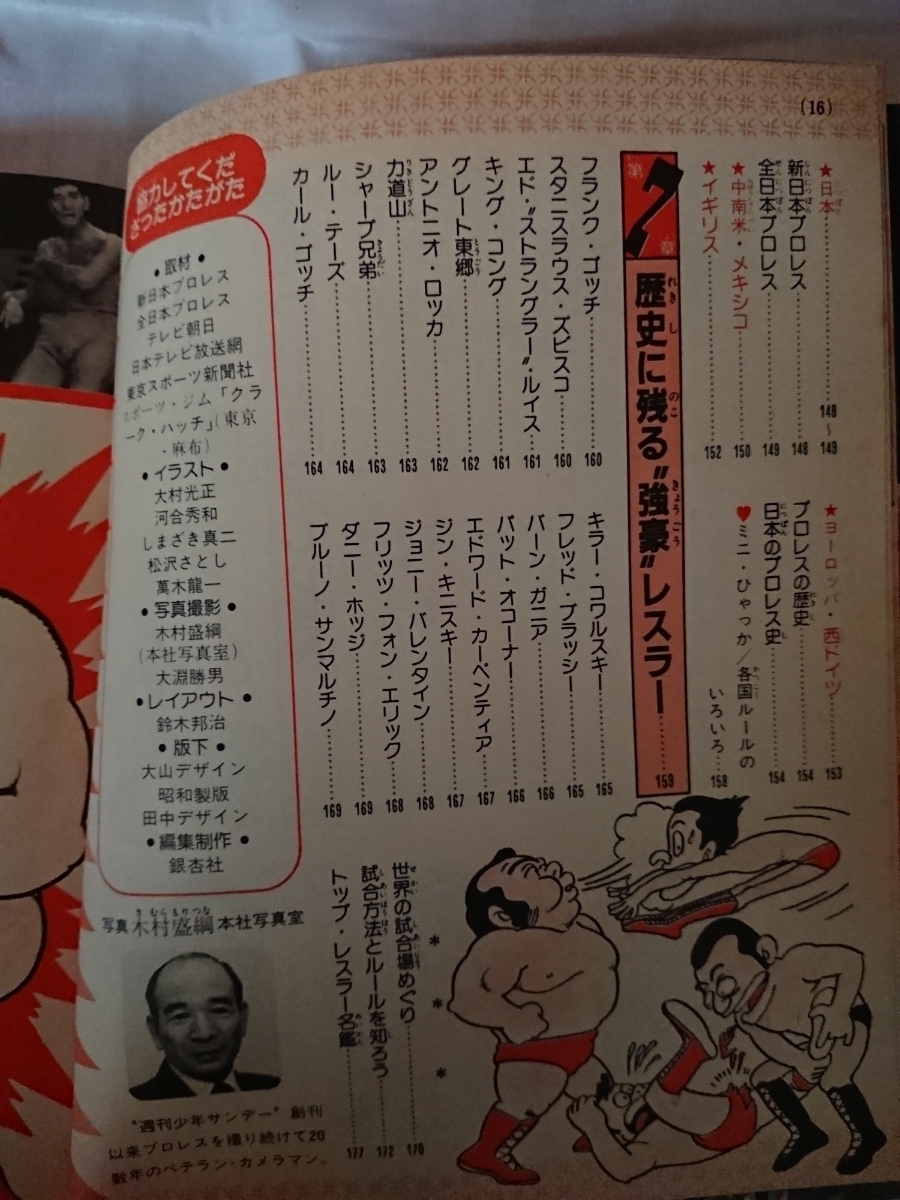 (16)
★日本……148〜149
新日本プロレス……148
全日本プロレス……149
★中南米・メキシコ……150
★イギリス……152
★ヨーロッパ・西ドイツ……153
プロレスの歴史……154
日本のプロレス史……154
♥ミニ・ひゃっか/各国ルールの
いろいろ……158
第7章
歴史に残る"強豪"レスラー……159
フランク・ゴッチ……160
スタニスラウス・ズビスコ……160
エド・"ストラングラー"・ルイス……161
キング・コング……161
グレート東郷……162
アントニオ・ロッカ……162
力道山……163
シャープ兄弟……163
ルー・テーズ……164
カール・ゴッチ……164
キラー・コワルスキー……165
フレッド・ブラッシー……165
バーン・ガニア……166
パット・オコーナー……166
エドワード・カーペンティア……167
ジン・キニスキー……167
ジョニー・バレンタイン……168
フリッツ・フォン・エリック……168
ダニー・ホッジ……169
ブルーノ・サンマルチノ……169
＊ ＊ ＊
世界の試合場めぐり……170
試合方法とルールを知ろう……172
トップ・レスラー名鑑……177
協力してくだ
さったかたがた
●取材●
新日本プロレス
全日本プロレス
テレビ朝日
日本テレビ放送網
東京スポーツ新聞社
スポーツ・ジム「クラ
ーク・ハッチ」(東京
・麻布)
●イラスト●
大村光正
河合秀和
しまざき真二
松沢さとし
萬木龍一
●写真撮影●
木村盛綱
(本社写真室)
大淵勝男
●レイアウト●
鈴木邦治
●版下●
大山デザイン
昭和製版
田中デザイン
●編集制作●
銀杏社
写真 木村盛綱 本社写真室
"週刊少年サンデー"創刊
以来プロレスを撮り続けて20
数年のベテラン・カメラマン。